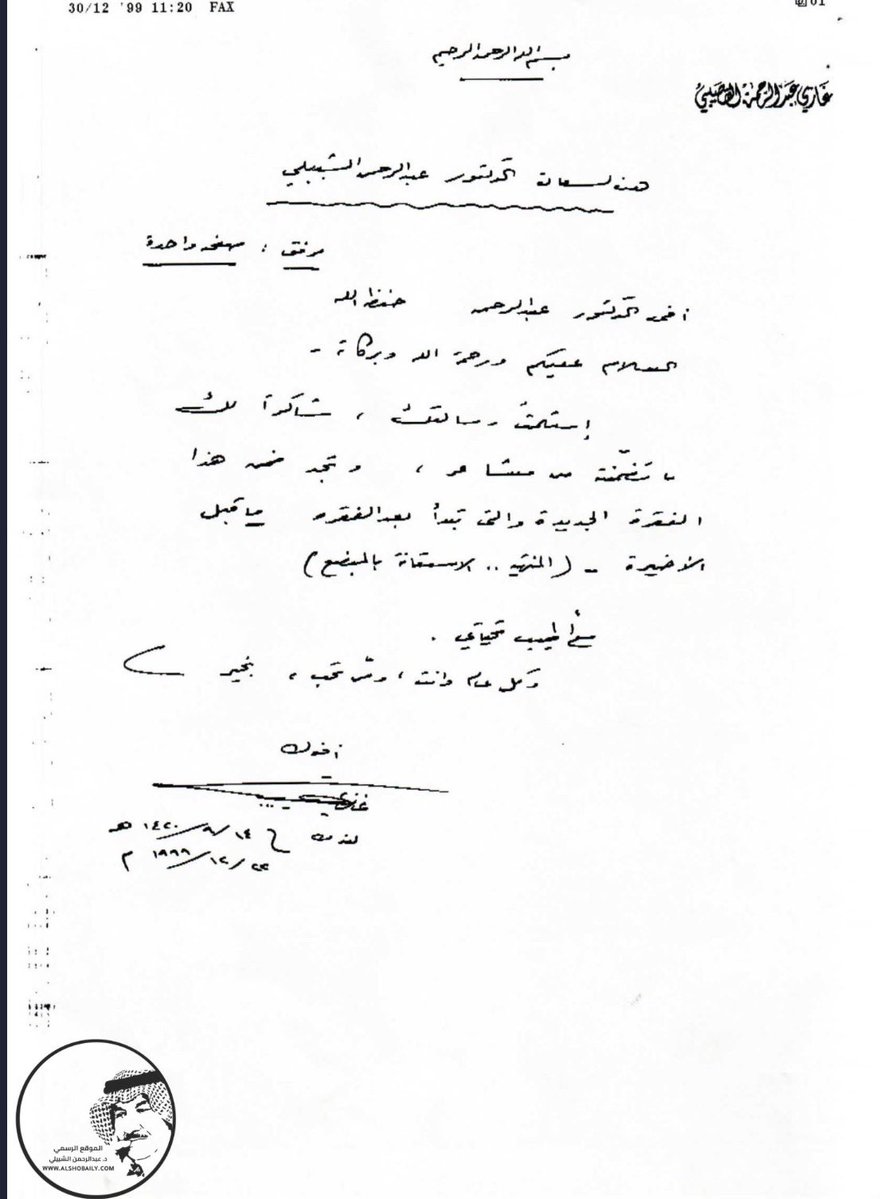 30/12 '99 11:20 FAX
01
بسم الله الرحمن الرحيم
غازي عبد الرحمن القصيبي
سعادة الدكتور عبدالرحمن الشبيلي
مرفق : صفحة واحدة
أخي الدكتور عبدالرحمن حفظه الله
السلام عليكم ورحمة الله وبركاته -
إستلمت رسالتك ، شاكراً لك
ما تضمّنته من مشاعر ، وتجد ضمن هذا
الفقرة الجديدة والتي تبدأ بعد الفقرة ما قبل
الأخيرة - ( .. الاستعانة بالمبضع)
مع أطيب تحياتي .
وكل عام وانت ، ومن تحب ، بخير
أخوك
غازي
لندن
١٤/٩/١٤٢٠ هـ
٢٢/١٢/١٩٩٩ م
الموقع الرسمي
د. عبدالرحمن الشبيلي
WWW.ALSHOBAILY.COM